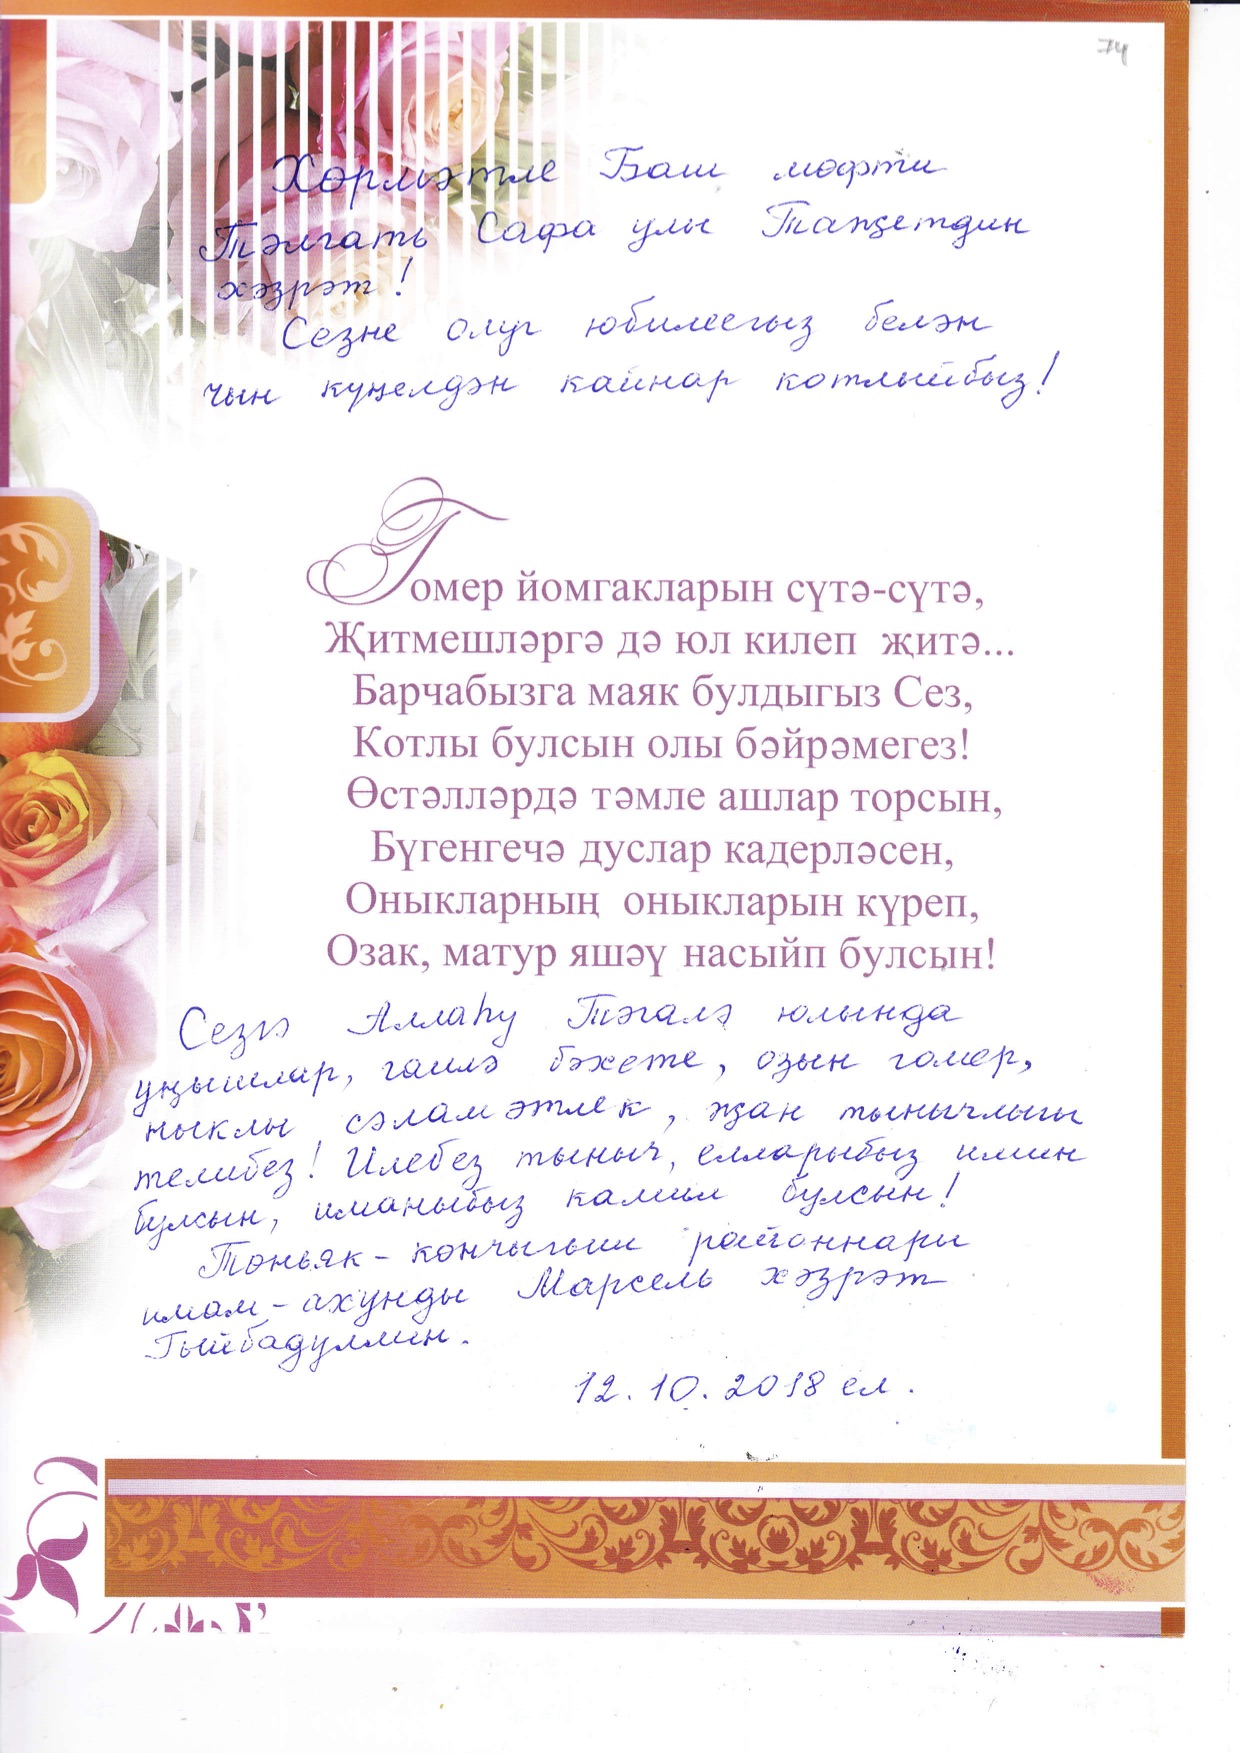 74
Хөрмәтле Баш мөфти
Тәлгать Сафа улы Таҗетдин
хәзрәт!
Сезне олуг юбилеегыз белән
чын күңелдән кайнар котлыйбыз!
Гомер йомгакларын сүтә-сүтә,
Җитмешләргә дә юл килеп җитә...
Барчабызга маяк булдыгыз Сез,
Котлы булсын олы бәйрәмегез!
Өстәлләрдә тәмле ашлар торсын,
Бүгенгечә дуслар кадерләсен,
Оныкларның оныкларын күреп,
Озак, матур яшәү насыйп булсын!
Сезгә Аллаһу Тәгалә юлында
уңышлар, гаилә бәхете, озын гомер,
ныклы сәламәтлек, җан тынычлыгы
телибез! Илебез тыныч, елларыбыз имин
булсын, иманыбыз камил булсын!
Төньяк-көнчыгыш районнары
имам-ахунды Марсель хәзрәт
Гыйбадуллин.
12.10.2018 ел.